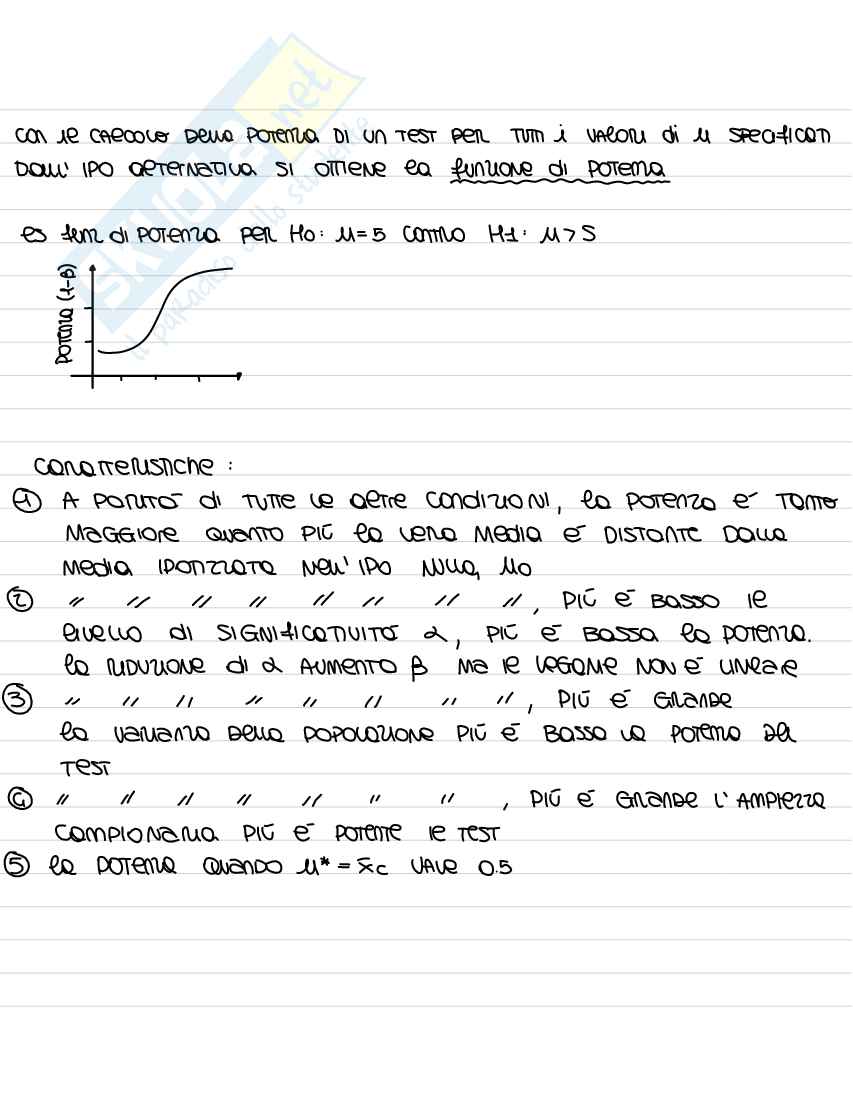 SKUOLA.net
il paradiso dello studente
con il calcolo della potenza di un test per tutti i valori di μ specificati
dall' ipo alternativa si ottiene la funzione di potenza
es funz di potenza per H0: μ=5 contro H1: μ>5
potenza (1-β)
caratteristiche:
① A parità di tutte le altre condizioni, la potenza è tanto
maggiore quanto più la vera media è distante dalla
media ipotizzata nell' ipo nulla, μ0
② " " " " " " " ", più è basso il
livello di significatività α, più è bassa la potenza.
la riduzione di α aumenta β ma il legame non è lineare
③ " " " " " " " ", più è grande
la varianza della popolazione più è bassa la potenza del
test
④ " " " " " " ", più è grande l'ampiezza
campionaria più è potente il test
⑤ la potenza quando μ* = x̄c vale 0.5